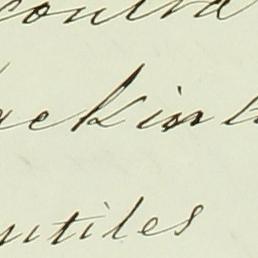 contra
ackint
utiles